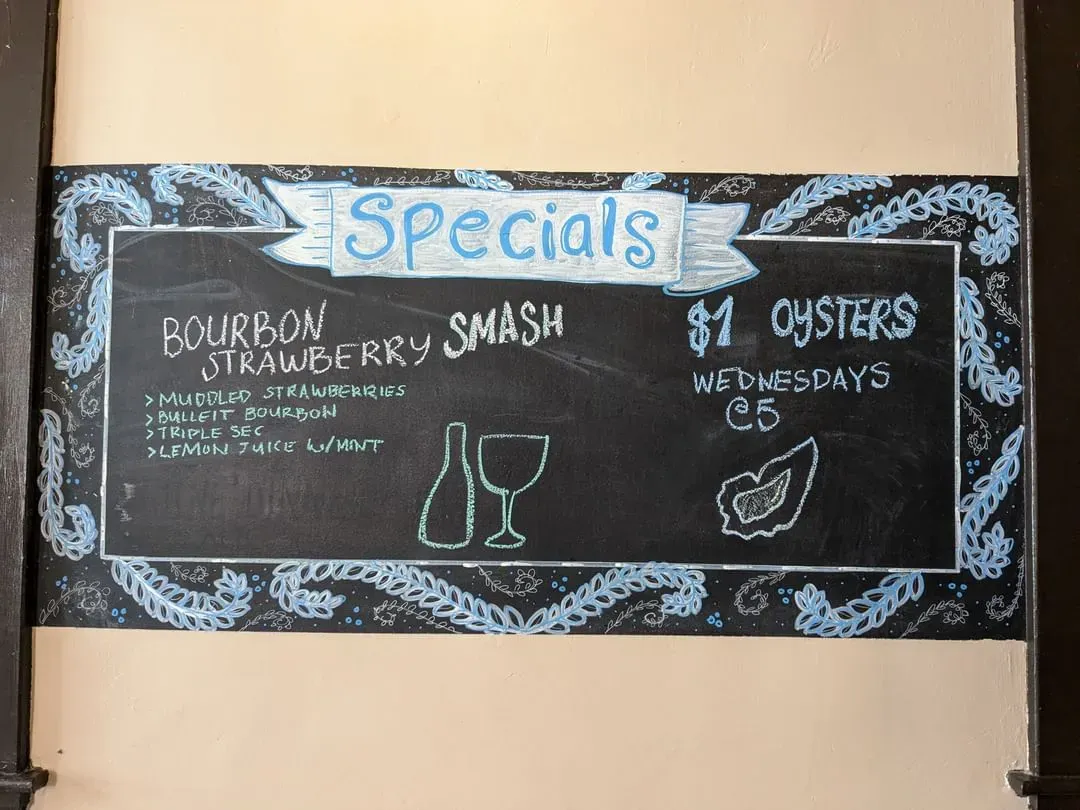 Specials
BOURBON
STRAWBERRY SMASH
> MUDDLED STRAWBERRIES
> BULLEIT BOURBON
> TRIPLE SEC
> LEMON JUICE W/MINT
$1 OYSTERS
WEDNESDAYS
@5